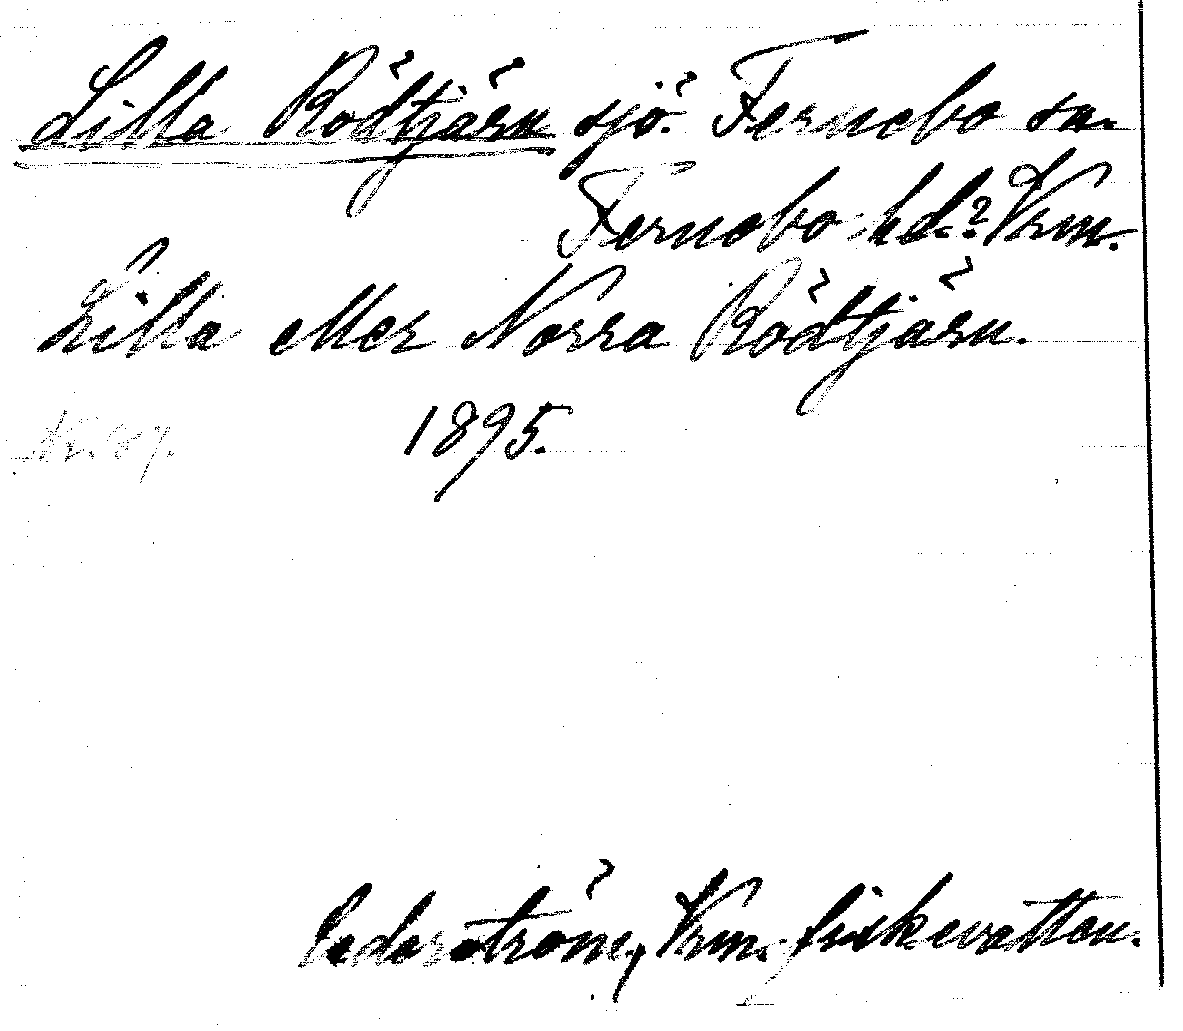 Lilla Rödtjärn sjö. Fernebo sn.
Fernebo hd.? Vrm.
Lilla eller Norra Rödtjärn.
Nr. 87. 1895.
Cederström, Vrm. fiskevatten.